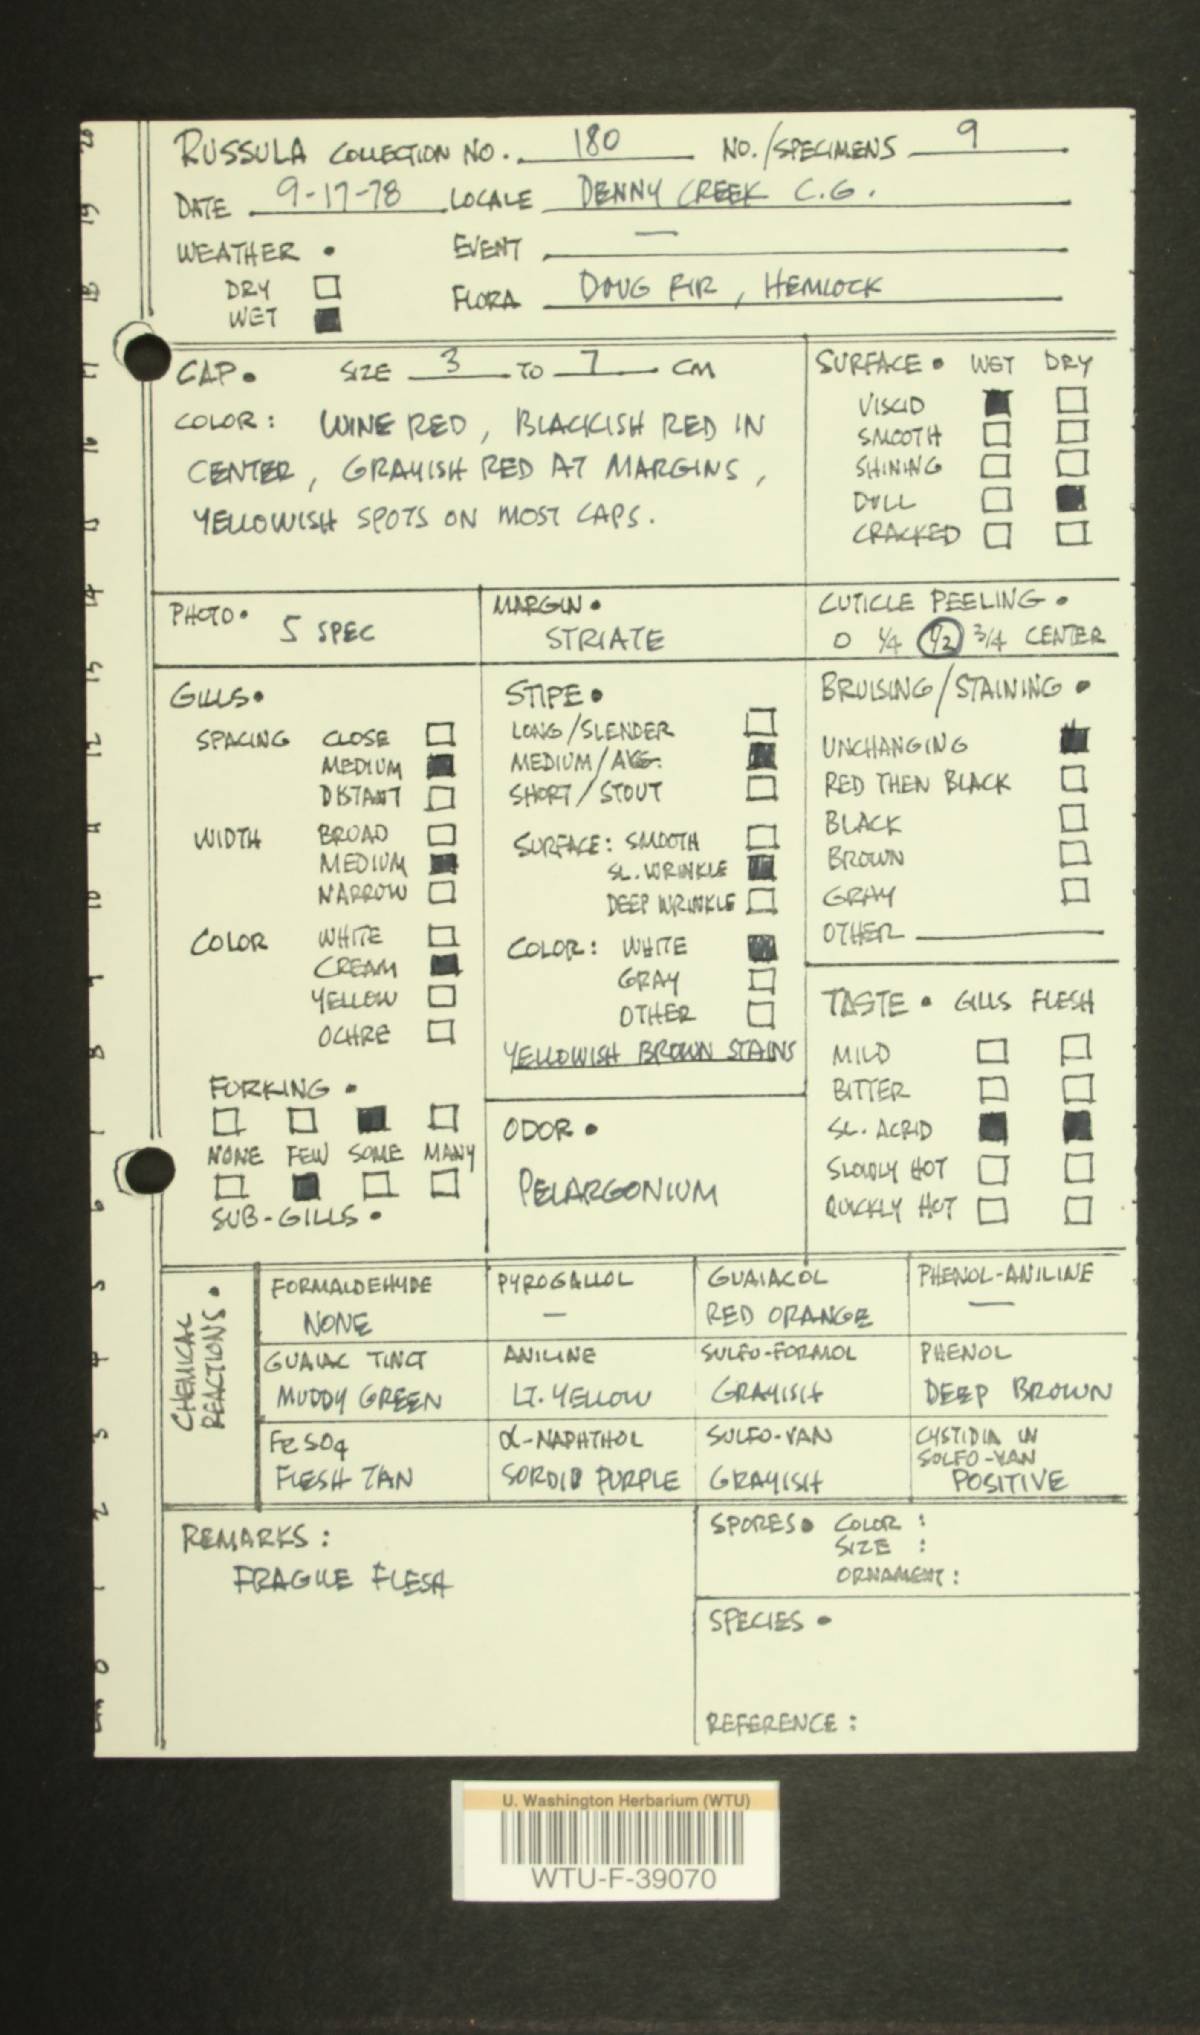 RUSSULA COLLECTION NO. 180 NO./SPECIMENS 9
DATE 9-17-78 LOCALE DENNY CREEK C.G.
WEATHER • EVENT —
DRY
FLORA DOUG FIR, HEMLOCK
WET
CAP • SIZE 3 TO 7 CM
COLOR: WINE RED, BLACKISH RED IN
CENTER, GRAYISH RED AT MARGINS,
YELLOWISH SPOTS ON MOST CAPS.
SURFACE • WET DRY
VISCID
SMOOTH
SHINING
DULL
CRACKED
PHOTO • 5 SPEC
MARGIN •
STRIATE
CUTICLE PEELING •
0 1/4 1/2 3/4 CENTER
GILLS •
SPACING CLOSE
MEDIUM
DISTANT
WIDTH BROAD
MEDIUM
NARROW
COLOR WHITE
CREAM
YELLOW
OCHRE
FORKING •
NONE FEW SOME MANY
SUB-GILLS •
STIPE •
LONG/SLENDER
MEDIUM/AVG.
SHORT/STOUT
SURFACE: SMOOTH
SL. WRINKLE
DEEP WRINKLE
COLOR: WHITE
GRAY
OTHER
YELLOWISH BROWN STAINS
ODOR •
PELARGONIUM
BRUISING/STAINING •
UNCHANGING
RED THEN BLACK
BLACK
BROWN
GRAY
OTHER
TASTE • GILLS FLESH
MILD
BITTER
SL. ACRID
SLOWLY HOT
QUICKLY HOT
CHEMICAL
REACTIONS •
FORMALDEHYDE PYROGALLOL GUAIACOL PHENOL-ANILINE
NONE — RED ORANGE —
GUAIAC TINCT ANILINE SULFO-FORMOL PHENOL
MUDDY GREEN LT. YELLOW GRAYISH DEEP BROWN
FeSO4 α-NAPHTHOL SULFO-VAN CYSTIDIA IN
SULFO-VAN
FLESH TAN SORDID PURPLE GRAYISH POSITIVE
REMARKS:
FRAGILE FLESH
SPORES • COLOR:
SIZE:
ORNAMENT:
SPECIES •
REFERENCE:
20
19
18
17
16
15
14
13
12
11
10
9
8
7
6
5
4
3
2
1
0
cm
U. Washington Herbarium (WTU)
WTU-F-39070